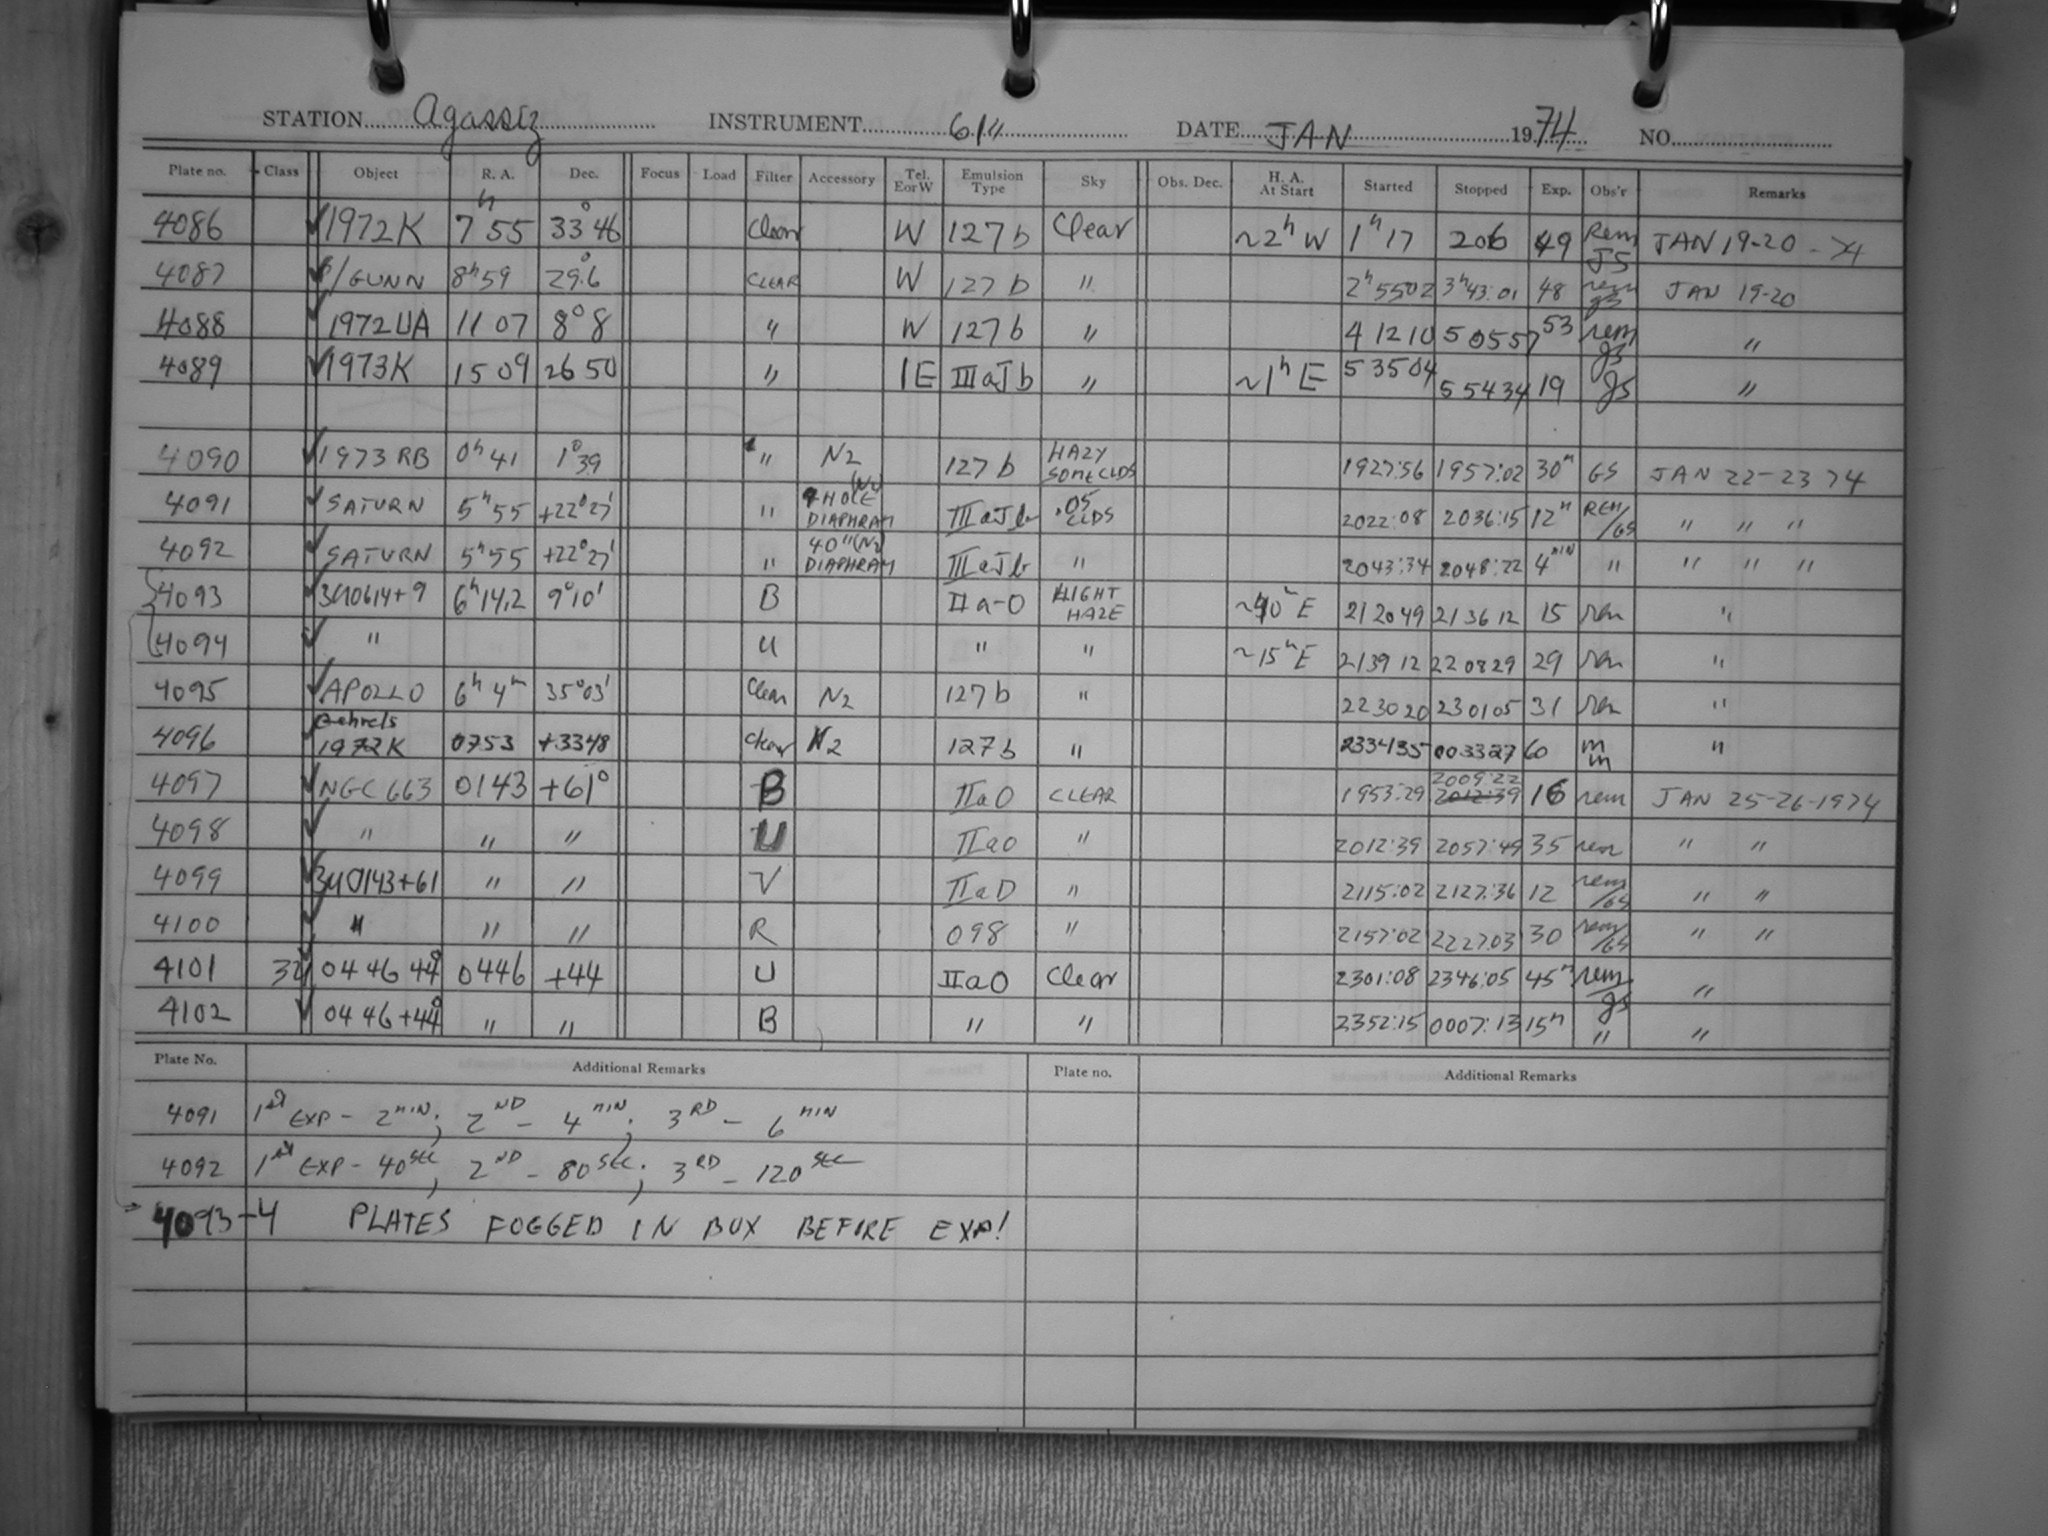 STATION Agassiz INSTRUMENT 61" DATE JAN 1974 NO.
Plate no. Class Object R. A. Dec. Focus Load Filter Accessory Tel. E or W Emulsion Type Sky Obs. Dec. H. A. At Start Started Stopped Exp. Obs'r Remarks
4086 1972K 7h 55 33° 46 Clear W 127b Clear ~2h W 1h 17 206 49 Rem JS JAN 19-20 - 74
4087 P/GUNN 8h59 29.°6 CLEAR W 127b " 2h5502 3h43:01 48 rem gs JAN 19-20
4088 1972UA 11 07 8°8 " W 127b " 4 12 10 5 05 57 53 rem gs "
4089 1973K 15 09 26 50 " 1E IIIaJb " ~1h E 5 35 04 5 54 34 19 gs "
4090 1973 RB 0h 41 1°39 " N2 127b HAZY SOME CLDS 1927:56 1957:02 30m GS JAN 22-23 74
4091 SATURN 5h 55 +22°27' " HOLE (N2) DIAPHRAM IIIaJb .05 CLDS 2022:08 2036:15 12m REM/GS " " "
4092 SATURN 5h55 +22°27' " 40"(N2) DIAPHRAM IIIaJb " 2043:34 2048:22 4min " " " "
4093 3U0614+9 6h14.2 9°10' B IIa-O LIGHT HAZE ~40m E 21 20 49 21 36 12 15 rem "
4094 " U " " ~15m E 2139 12 22 08 29 29 rem "
4095 APOLLO 6h 4m 35°03' Clear N2 127b " 22 30 20 23 01 05 31 rem "
4096 Gehrels 1972K 0753 +3348 Clear N2 127b " 233435 003327 60 m m "
4097 NGC 663 0143 +61° B IIaO CLEAR 1953:29 2009:22 2012:39 16 rem JAN 25-26-1974
4098 " " " U IIaO " 2012:39 2057:49 35 rem " "
4099 3U0143+61 " " V IIaD " 2115:02 2127:36 12 rem/GS " "
4100 " " " R 098 " 2157:02 222703 30 rem/GS " "
4101 04 46 44° 0446 +44 U IIaO Clear 2301:08 2346:05 45m rem/gs "
4102 04 46+44° " " B " " 2352:15 0007:13 15m " "
Plate No. Additional Remarks Plate no. Additional Remarks
4091 1st EXP - 2min; 2ND - 4min; 3RD - 6min
4092 1st EXP - 40sec; 2ND - 80sec; 3RD - 120sec
4093-4 PLATES FOGGED IN BOX BEFORE EXP!